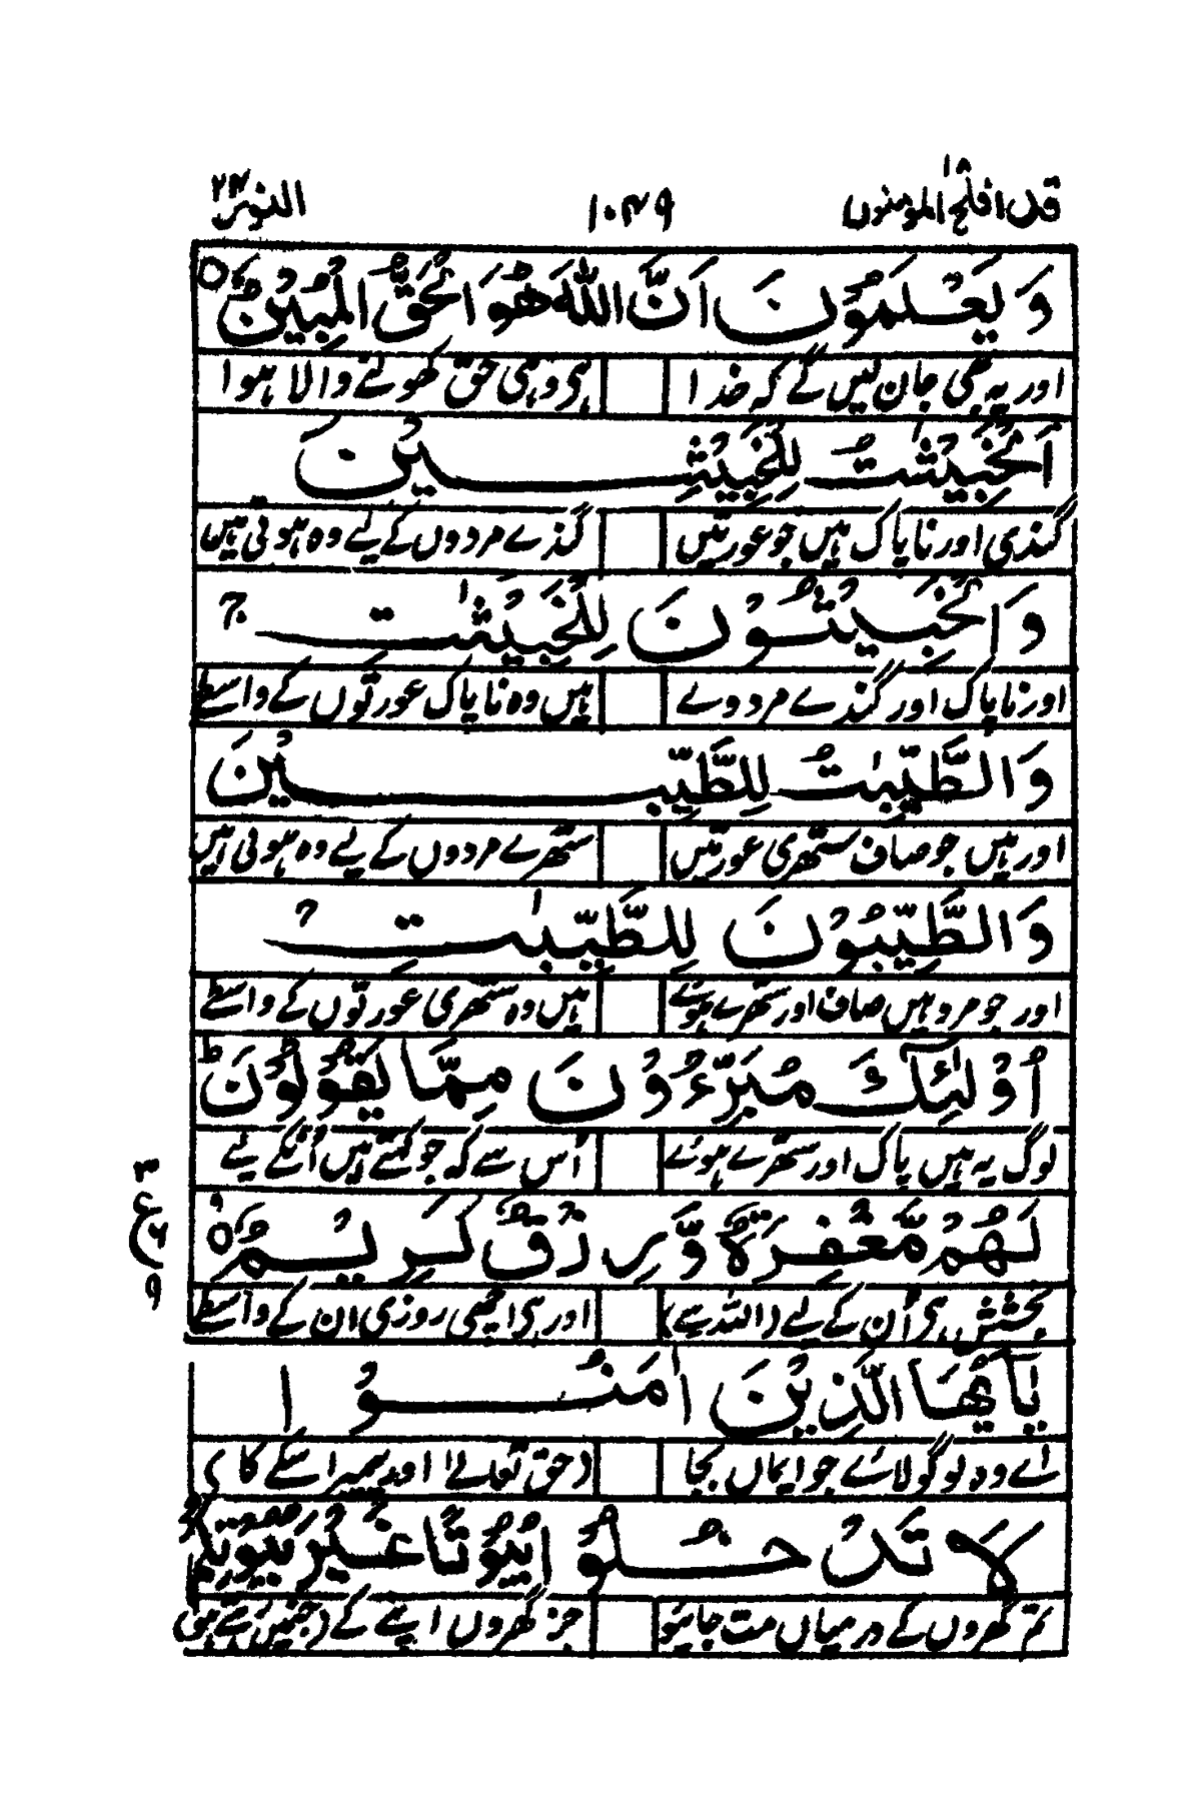 قد افلح المؤمنون ۱۸ ۱۰۴۹ النور ۲۴
وَ يَعْلَمُوْنَ اَنَّ اللّٰهَ هُوَ الْحَقُّ الْمُبِيْنُ
اور یہ بھی جان لیں گے کہ خدا ہی وہی حق کھولنے والا ہوا
اَلْخَبِيْثٰتُ لِلْخَبِيْثِيْنَ
گندی اور ناپاک ہیں جو عورتیں گندے مردوں کے لیے وہ ہوتی ہیں
وَ الْخَبِيْثُوْنَ لِلْخَبِيْثٰتِ ۚ
اور ناپاک اور گندے مرد وے ہیں وہ ناپاک عورتوں کے واسطے
وَ الطَّيِّبٰتُ لِلطَّيِّبِيْنَ
اور ہیں جو صاف ستھری عورتیں ستھرے مردوں کے لیے وہ ہوتی ہیں
وَ الطَّيِّبُوْنَ لِلطَّيِّبٰتِ ۚ
اور جو مرد ہیں صاف اور ستھرے ہوئے ہیں وہ ستھری عورتوں کے واسطے
اُوْلٰٓئِكَ مُبَرَّءُوْنَ مِمَّا يَقُوْلُوْنَ ؕ
لوگ یہ ہیں پاک اور ستھرے ہوئے اُس سے کہ جو کہتے ہیں اُنکے لیے
لَهُمْ مَّغْفِرَةٌ وَّ رِزْقٌ كَرِيْمٌ
۳ ع ۶ ۹
بخشش ہی اُن کے لیے (اللہ سے) اور ہی اچھی روزی ان کے واسطے
يٰٓاَيُّهَا الَّذِيْنَ اٰمَنُوْا
اے وہ لوگو لائے جو ایماں بجا (حق تعالےٰ اور پیمبر اسکے کا)
لَا تَدْخُلُوْا بُيُوْتًا غَيْرَ بُيُوْتِكُمْ
تم گھروں کے درمیاں مت جائیو جز گھروں اپنے کے